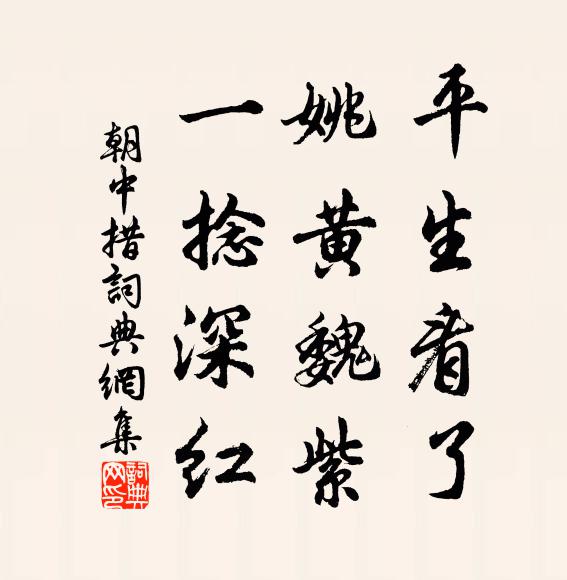 平生看了
姚黃魏紫
一捻深紅
朝中措詞典網集
詞典网印